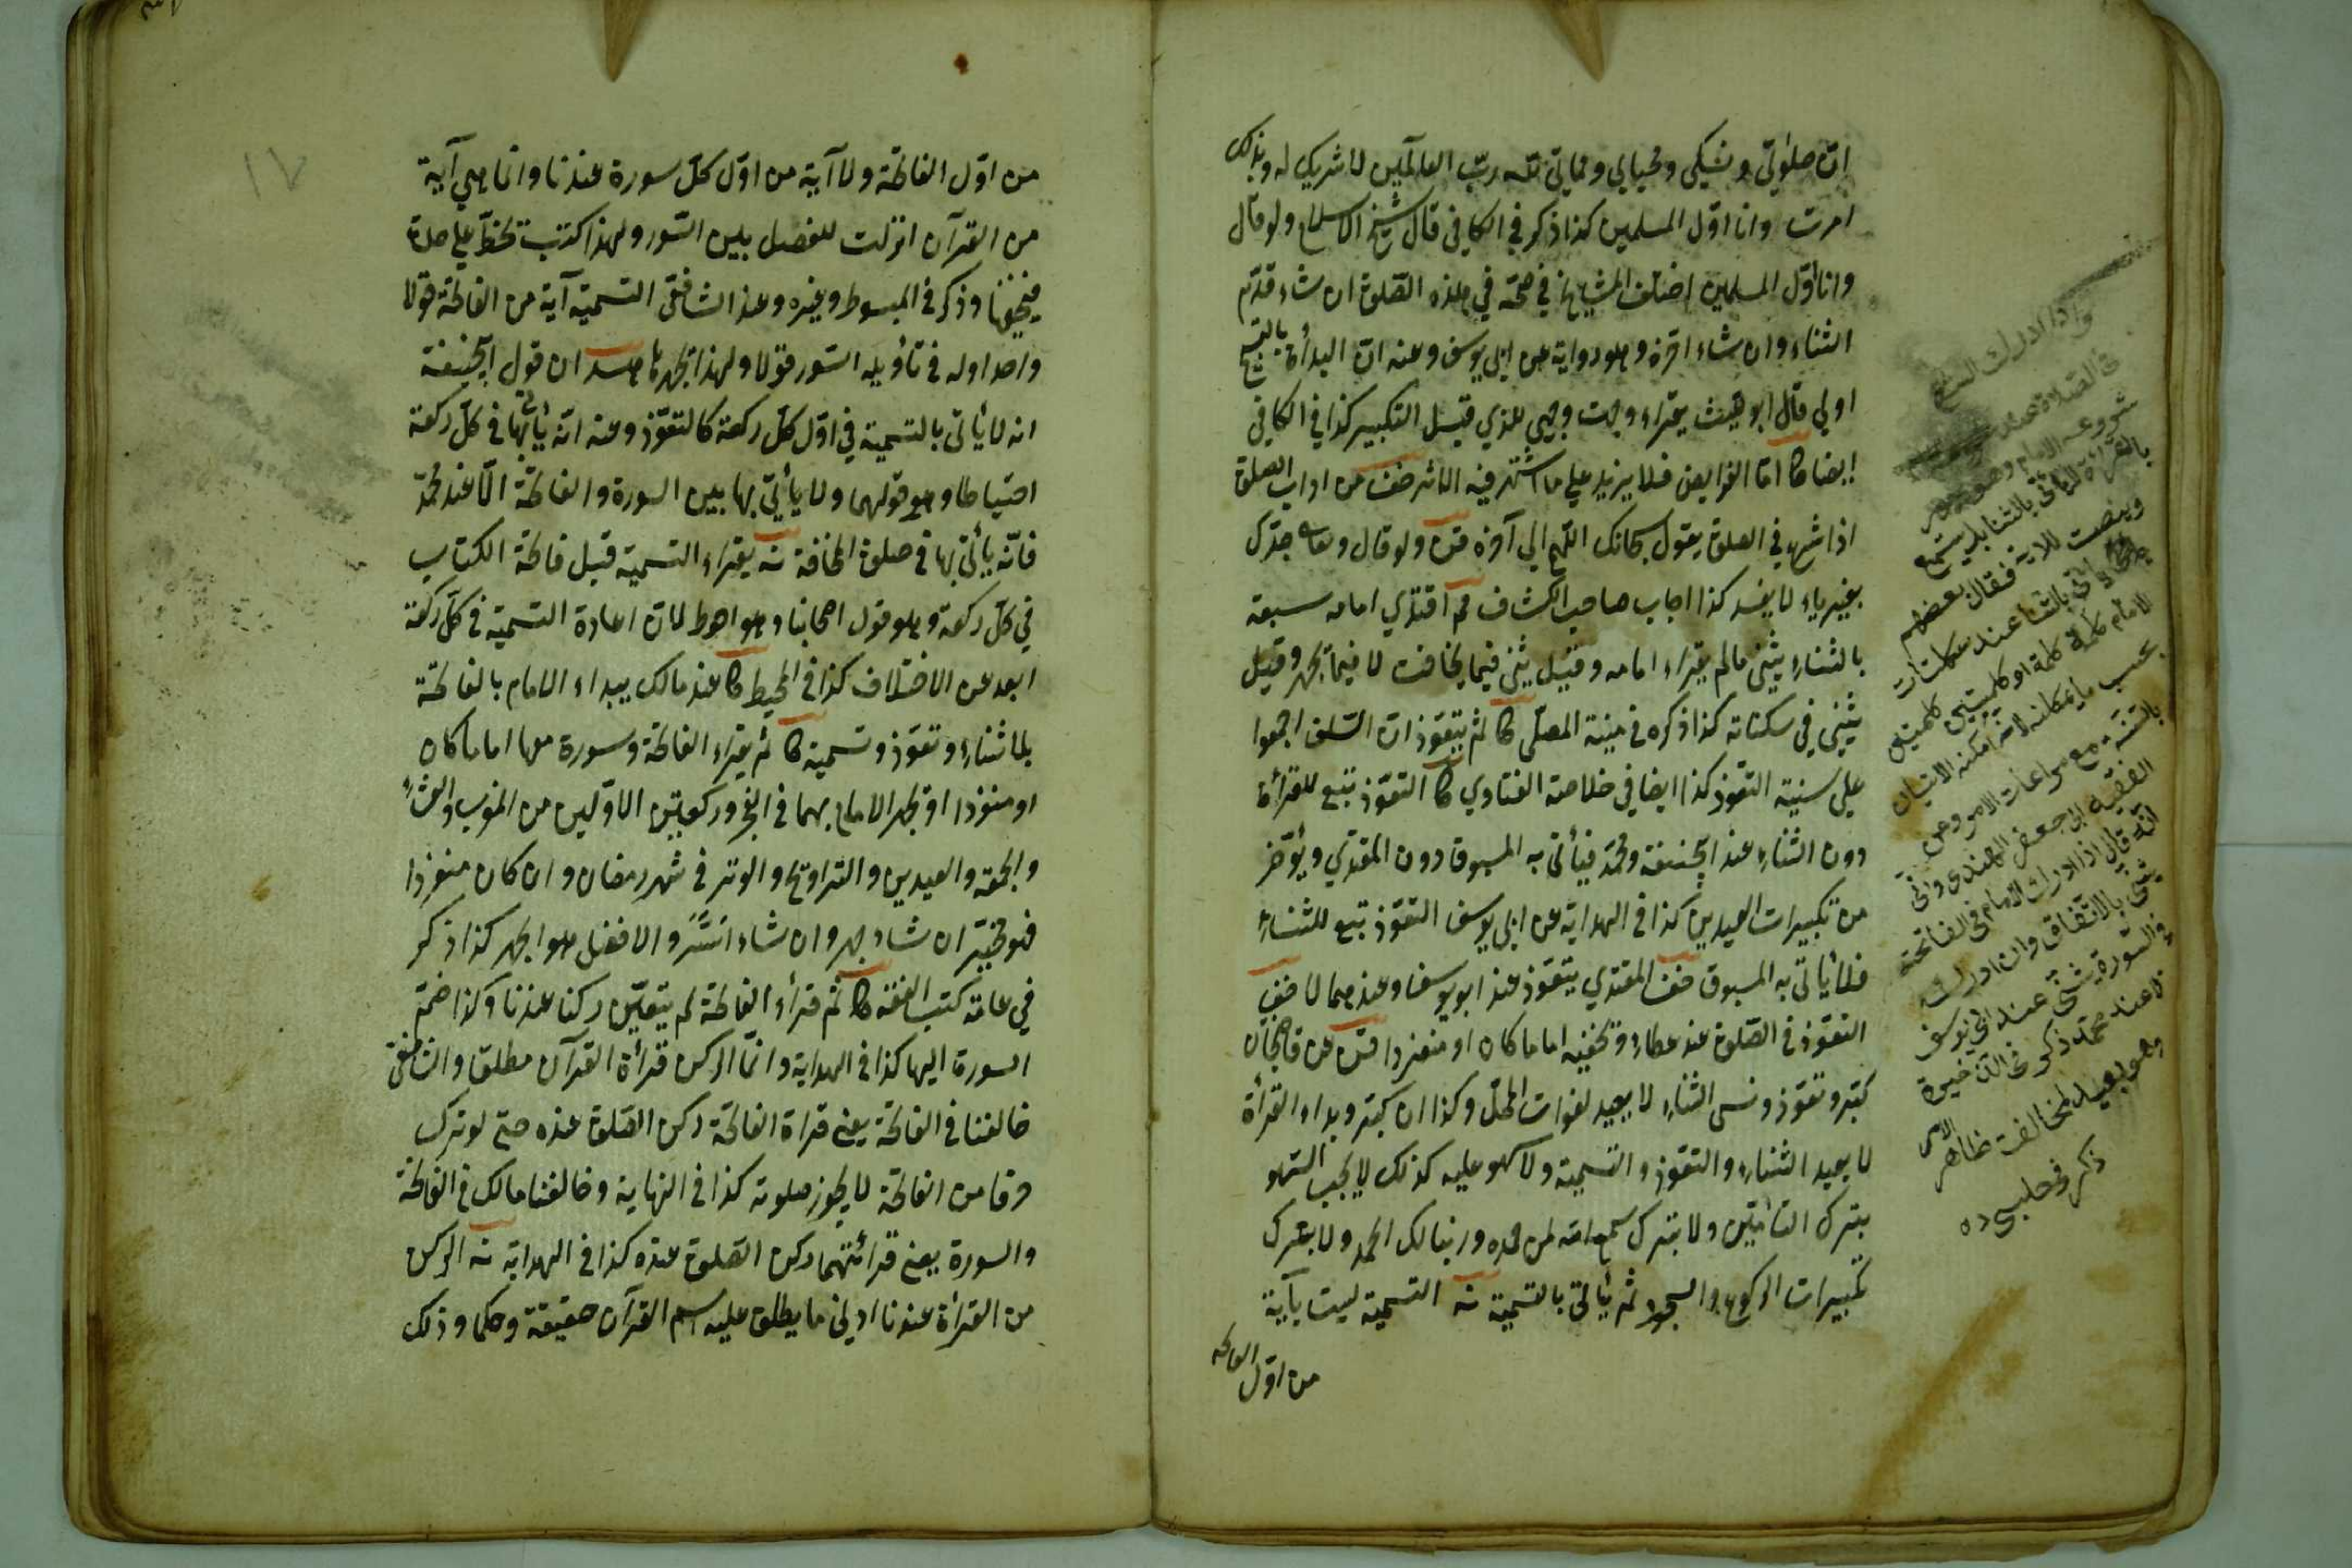 ان صلوتي ونسكي ومحياي ومماتي لله رب العالمين لا شريك له وبذلك
امرت وانا اول المسلمين كذا ذكر في الكافي قال شيخ الاسلام ولو قال
وانا اول المسلمين اختلف المشايخ في صحته في هذه الصلوة ان شاء قدم
الثناء وان شاء اخره وهو رواية عن ابي يوسف وعنه ان البدأة بالتسبيح
اولي قال ابو الليث يقراء وجهت وجهي للذي قبل التكبير كذا في الكافي
ايضا كا اما الفرايض فلا يزيد علي ما اشتهر فيه الاثر ضف من اداب الصلوة
اذا شرع في الصلوة يقول سبحانك اللهم الي آخره قن ولو قال وتعا جدك
بغير ياء لا يفسد كذا اجاب صاحب الكشاف قم اقتدي امامه سبقه
بالثناء يثني ما لم يقراء امامه وقيل يثني فيما يخافت لا فيما يجهر وقيل
يثني في سكتاته كذا ذكره في منية المصلي كا ثم يتعوذ ان السلف اجمعوا
علي سنية التعوذ كذا ايضا في خلاصة الفتاوي كا التعوذ تبع للقراءة
دون الثناء عند ابيحنيفة ومحمد فيأتى به المسبوق دون المقتدي ويؤخر
من تكبيرات العيدين كذا في الهداية عن ابي يوسف التعوذ تبع للثناء
فلا يأتى به المسبوق ضف المقتدي يتعوذ عند ابو يوسف وعندهما لا ضف
التعوذ في الصلوة عند عطاء وتخفيه اماما كان او منفردا قن عن قاضيخان
كبر وتعوذ ونسي الثناء لا يعيد لفوات المحل وكذا ان كبر وبداء القرأة
لا يعيد الثناء والتعوذ والتسمية ولا سهو عليه كذلك لا يجب السهو
بترك التأمين ولا بترك سمع الله لمن حمده وربنا لك الحمد ولا بترك
تكبيرات الركوع والسجود ثم يأتى بالتسمية نه التسمية ليست بآية
من اول الفاتحة
واذا ادرك الشخص
في الصلاة عند
شروعه الامام وهو يجهر
بالقرأة لا يأتي بالثنا بل يستمع
وينصت للاية فقال بعضهم
يأتي بالثنا عند سكتات
الامام كلمة كلمة او كلمتين كلمتين
بحسب ما يمكنه لانه امكنه الاتيان
بالسنة مع مراعات الامر وعن
الفقيه ابي جعفر الهندواني
انه قال اذا ادرك الامام في الفاتحة
يثني بالاتفاق وان ادركه
في السورة يثني عند ابي يوسف
لا عند محمد ذكر في الذخيرة
وهو بعيد لمخالفت ظاهر الامر
ذكر في حلبي ده
١٧
من اول الفاتحة ولا آية من اول كل سورة عندنا وانما هي آية
من القرآن انزلت للفصل بين السور ولهذا كتبت بخط علي حدة
فيخفيها وذكر في المبسوط وغيره وعند الشافعى التسمية آية من الفاتحة قولا
واحدا وله في تأويله السور قولا ولهذا يجهر بها هد ان قول ابيحنيفة
انه لا يأتى بالتسمية في اول كل ركعة كالتعوذ وعنه انه يأتى بها في كل ركعة
احتياطا وهو قولهما ولا يأتي بها بين السورة والفاتحة الا عند محمد
فانه يأتى بها في صلوة المخافة نه يقراء التسمية قبل فاتحة الكتاب
في كل ركعة وهو قول اصحابنا وهو احوط لان اعادة التسمية في كل ركعة
ابعد عن الاختلاف كذا في المحيط كا عند مالك يبداء الامام بالفاتحة
بلا ثناء وتعوذ وتسمية كا ثم يقراء الفاتحة وسورة معها اماما كان
او منفردا او يجهر الامام بهما في الفجر وركعتين الاولين من المغرب والعشاء
والجمعة والعيدين والتراويح والوتر في شهر رمضان وان كان منفردا
فهو مخير ان شاء جهر وان شاء اسر والافضل هو الجهر كذا ذكر
في عامة كتب الفقه كا ثم قرأة الفاتحة لم يتعين ركنا عندنا وكذا ضم
السورة اليها كذا في الهداية وانما الركن قرأة القرآن مطلق والشافعى
خالفنا في الفاتحة يعنى قراة الفاتحة ركن الصلوة عنده حتى لو ترك
حرفا من الفاتحة لا يجوز صلوته كذا في النهاية وخالفنا مالك في الفاتحة
والسورة يعنى قرائتهما ركن الصلوة عنده كذا في الهداية نه الركن
من القرأة عندنا ادنى ما يطلق عليه اسم القرآن حقيقة وحكما وذلك